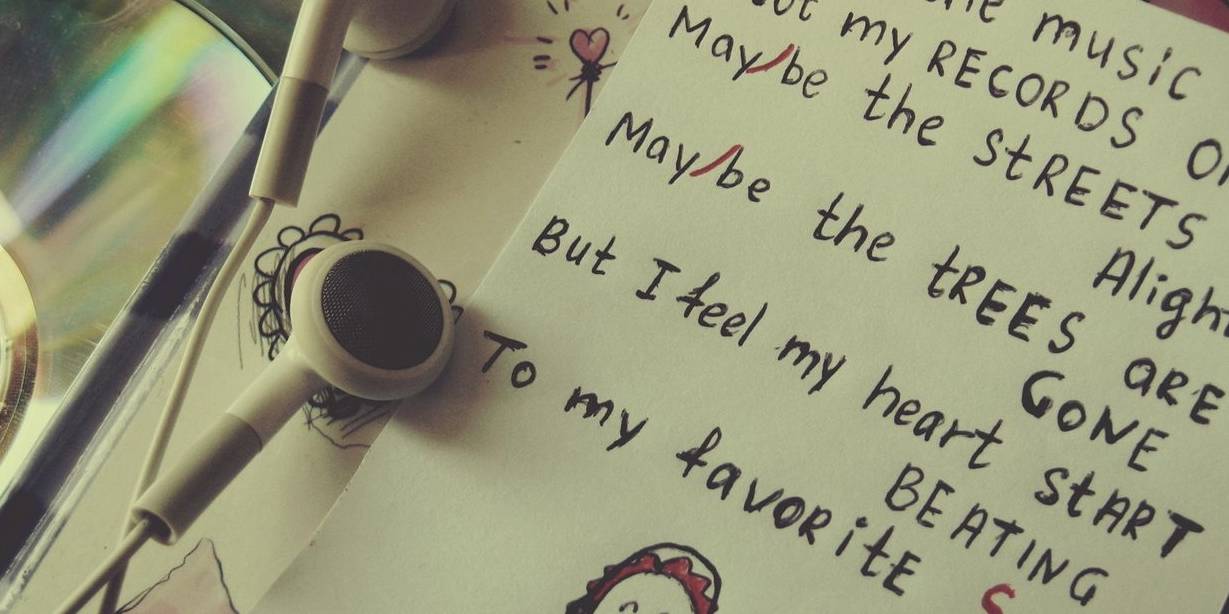 the music
my RECORDS
Maybe the STREETS
Alight
Maybe the tREES ARE
GONE
But I feel my heart StART
BEATING
To my favoritE